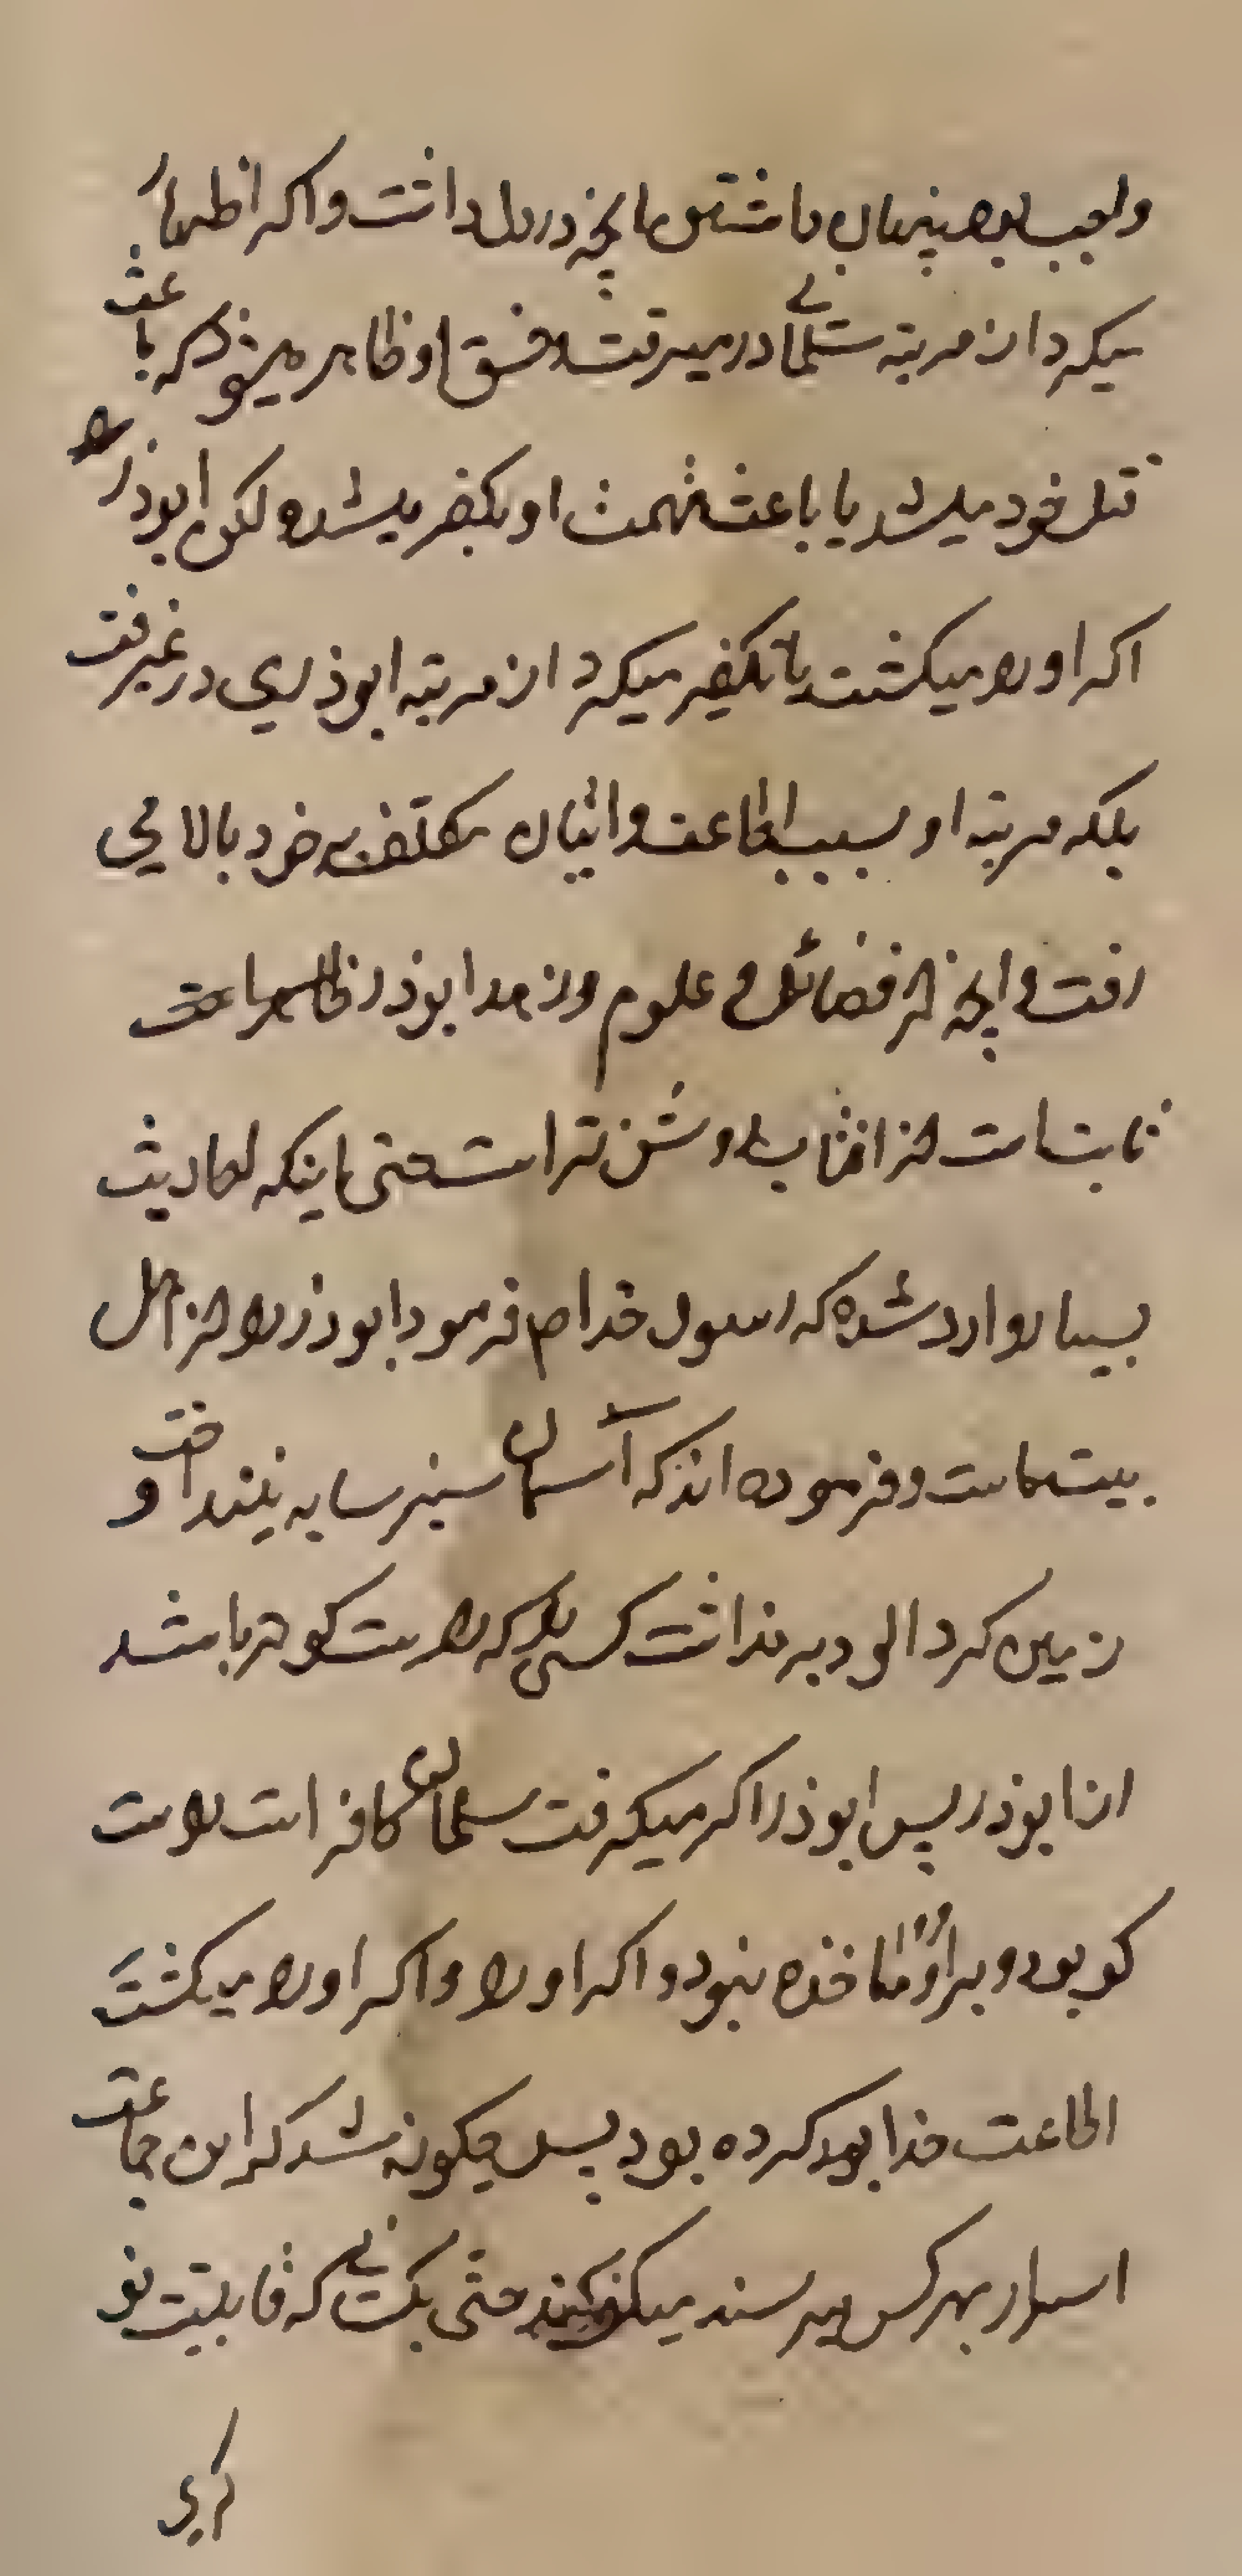 واجب بود پنهان داشتن مانچه در دل داشت و اکر اظهار
میکرد از مرتبه سلمانی در میرفت و فسق او ظاهر میشود که باعث
قتل خود میشد یا باعث تهمت او بکفر میشد و لکن ابوذر را
اکر او را میکشت یا تکفیر میکرد از مرتبه ابوذری در نمیرفت
بلکه مرتبه او بسبب اطاعت و اتیان بتکلیف خود بالا می
رفت و انچه از فضائل و علوم و زهد ابوذر ظاهر است
ثابت است از افتاب روشن تر است حتی اینکه احادیث
بسیار وارد شده که رسول خدا ص فرمود ابوذر را از اهل
بیت ماست و فرموده اند که آسمان سبز سایه نینداخت و
زمین کرد الود بر نداشت کسی را که راست کو تر باشد
از ابوذر پس ابوذر اکر میکفت سلمان کافر است راست
کو بود و بر او مؤاخذه نبود و اکر او را و اکر او را میکشت
اطاعت خدا بود کرده بود پس چکونه شد که این جماعت
اسرار بهر کس میرسند میکویند حتی بکسانی که قابلیت نو
کری